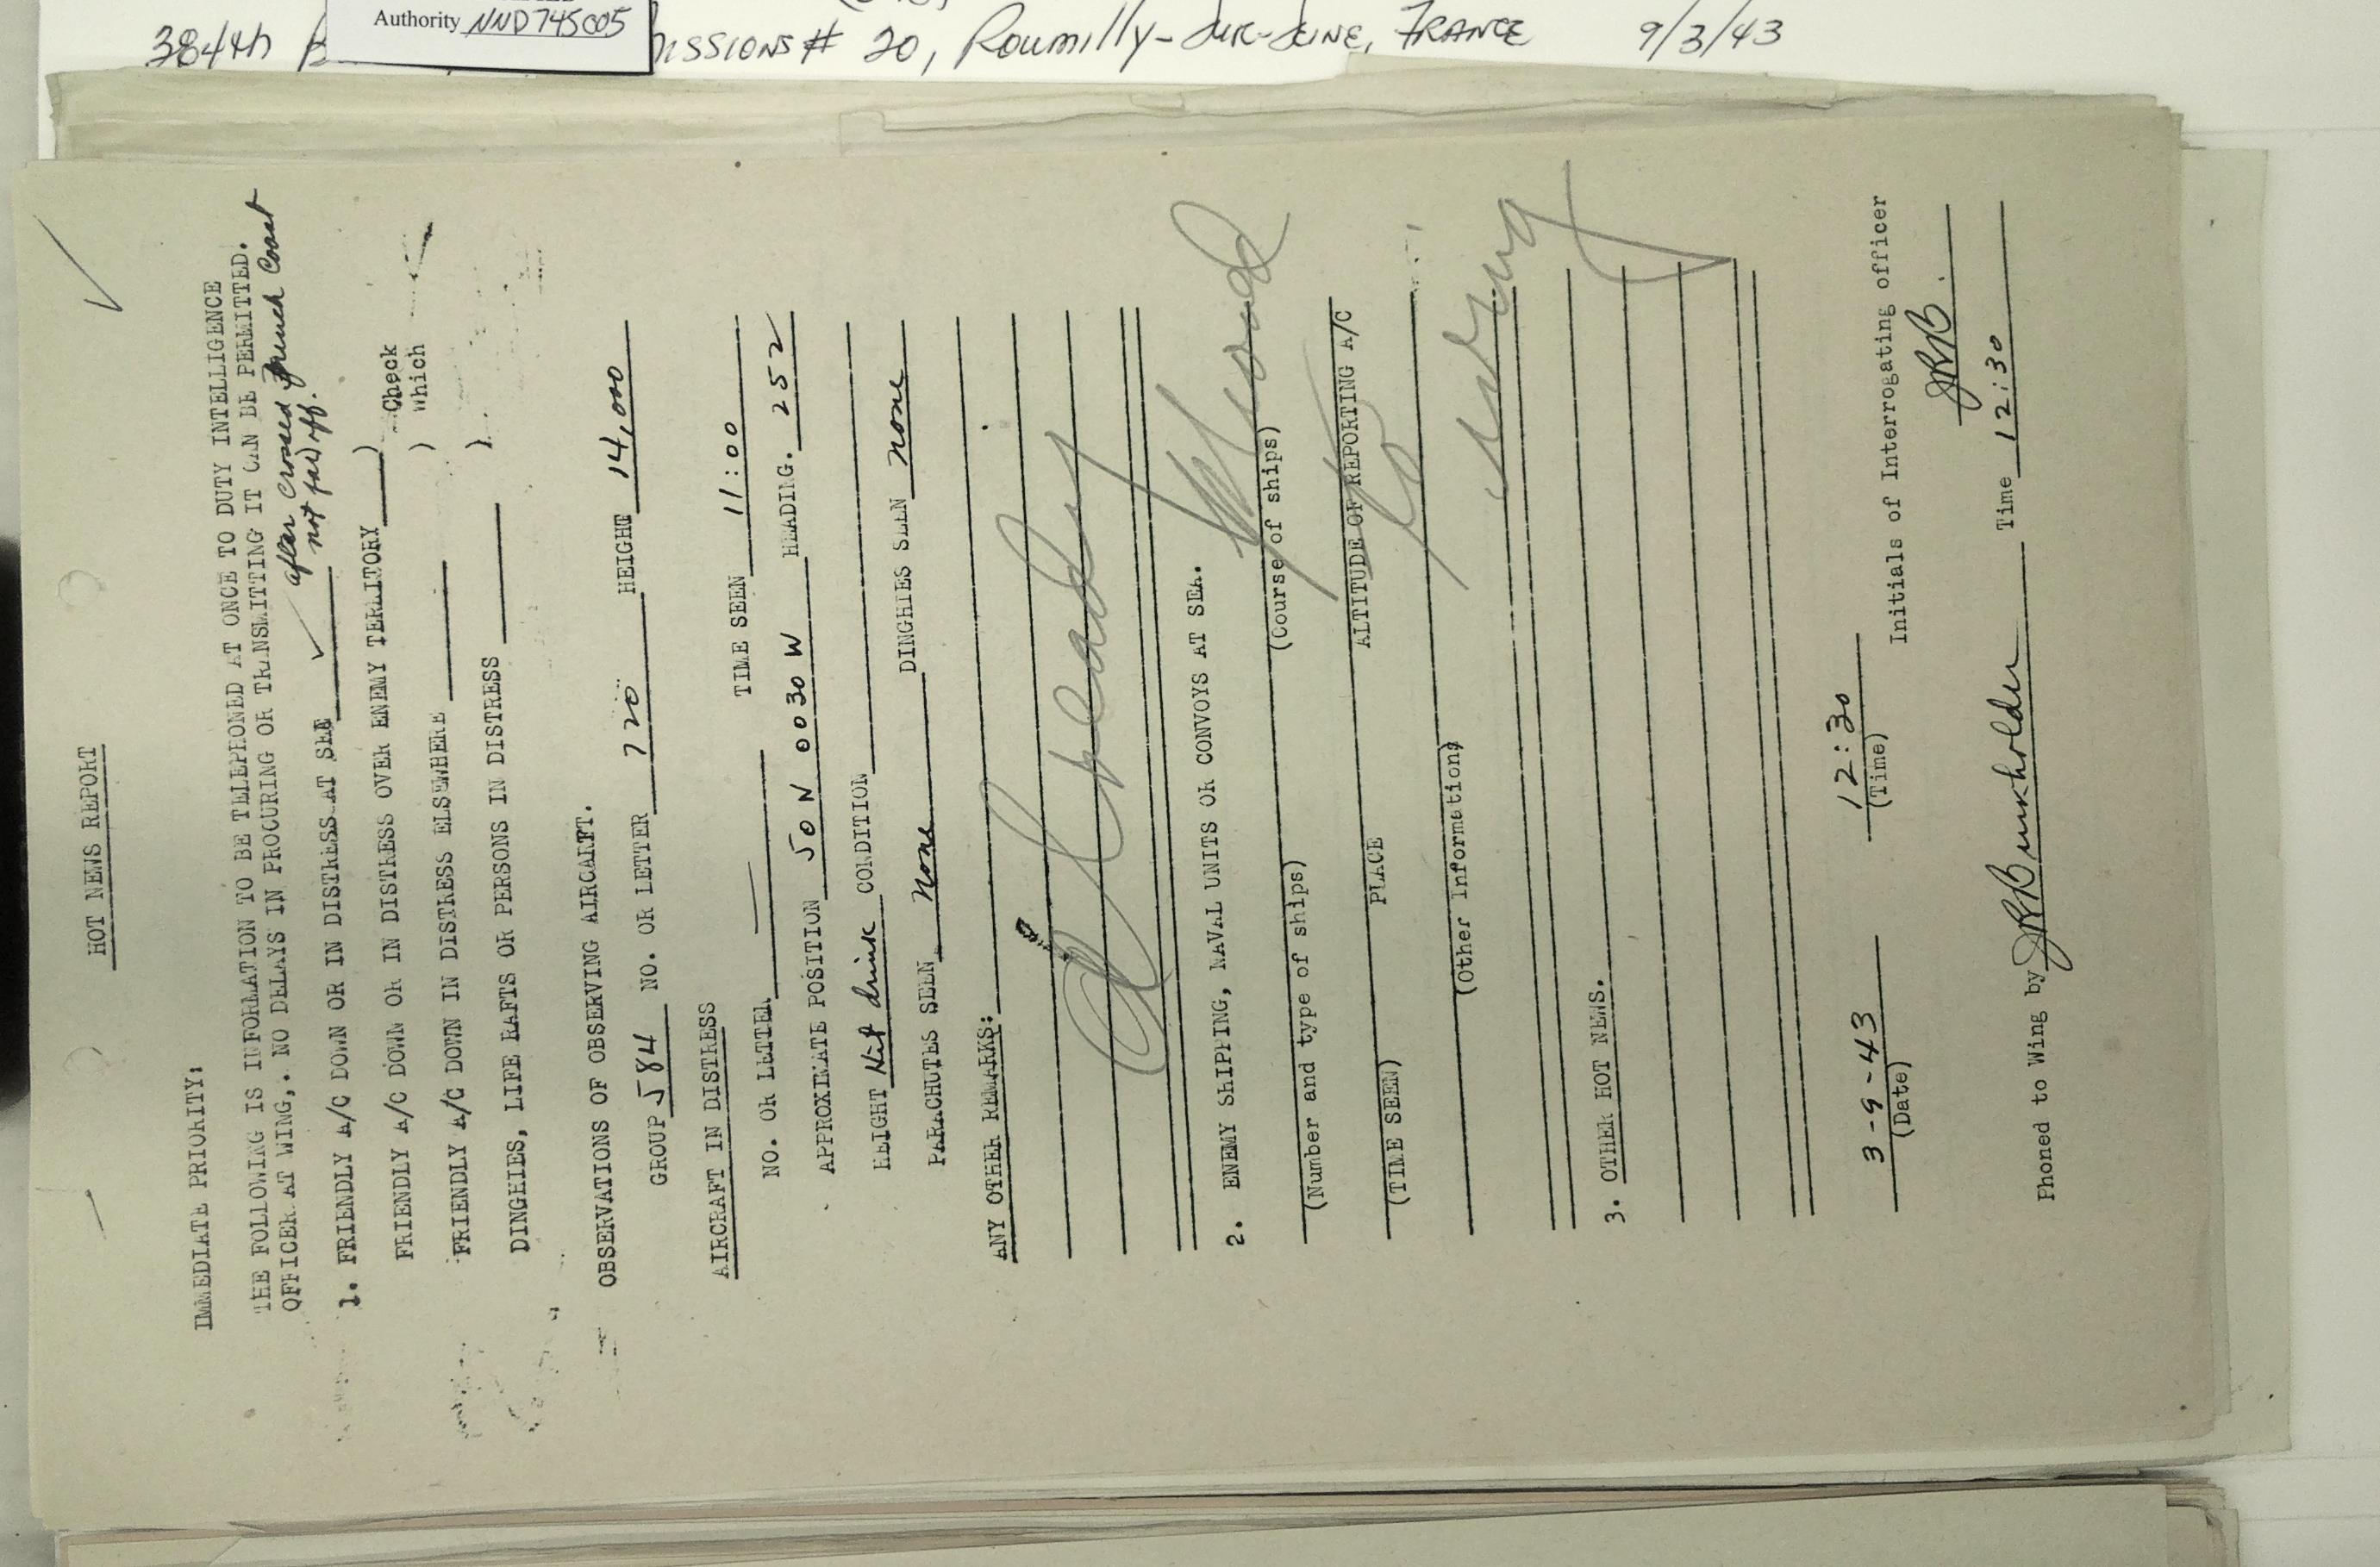 Authority NND745005
384th
ISSIONS # 20, Roumilly-Sur-Seine, FRANCE 9/3/43
HOT NEWS REPORT
IMMEDIATE PRIORITY:
THE FOLLOWING IS INFORMATION TO BE TELEPHONED AT ONCE TO DUTY INTELLIGENCE
OFFICER AT WING,. NO DELAYS IN PROCURING OR TRANSMITTING IT CAN BE PERMITTED.
after crossed french Coast
1. FRIENDLY A/C DOWN OR IN DISTRESS AT SEA ✓ not far off.
FRIENDLY A/C DOWN OR IN DISTRESS OVER ENEMY TERRITORY ) Check
FRIENDLY A/C DOWN IN DISTRESS ELSEWHERE ) Which
DINGHIES, LIFE RAFTS OR PERSONS IN DISTRESS )
OBSERVATIONS OF OBSERVING AIRCARFT.
GROUP 584 NO. OR LETTER 720 HEIGHT 14,000
AIRCRAFT IN DISTRESS
NO. OR LETTER — TIME SEEN 11:00
APPROXIMATE POSITION 50 N 0030 W HEADING. 252
HEIGHT Hit drink CONDITION
PARACHUTES SEEN None DINGHIES SEEN None
ANY OTHER REMARKS:
Already
Phoned
2. ENEMY SHIPPING, NAVAL UNITS OR CONVOYS AT SEA.
(Number and type of ships) (Course of ships)
to
(TIME SEEN) PLACE ALTITUDE OF REPORTING A/C
wing
(Other Information)
3. OTHER HOT NEWS.
3-9-43 12:30
(Date) (Time) Initials of Interrogating officer
JRB.
Phoned to Wing by JRBurkholder Time 12:30